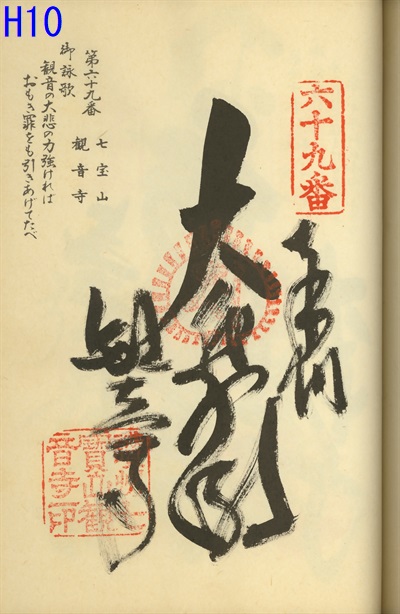 H10
六十九番
奉納
大悲殿
観音寺
第六十九番
七宝山
観音寺
御詠歌
観音の大悲の力強ければ
おもき罪をも引きあげてたべ
七
寳山観
音寺印